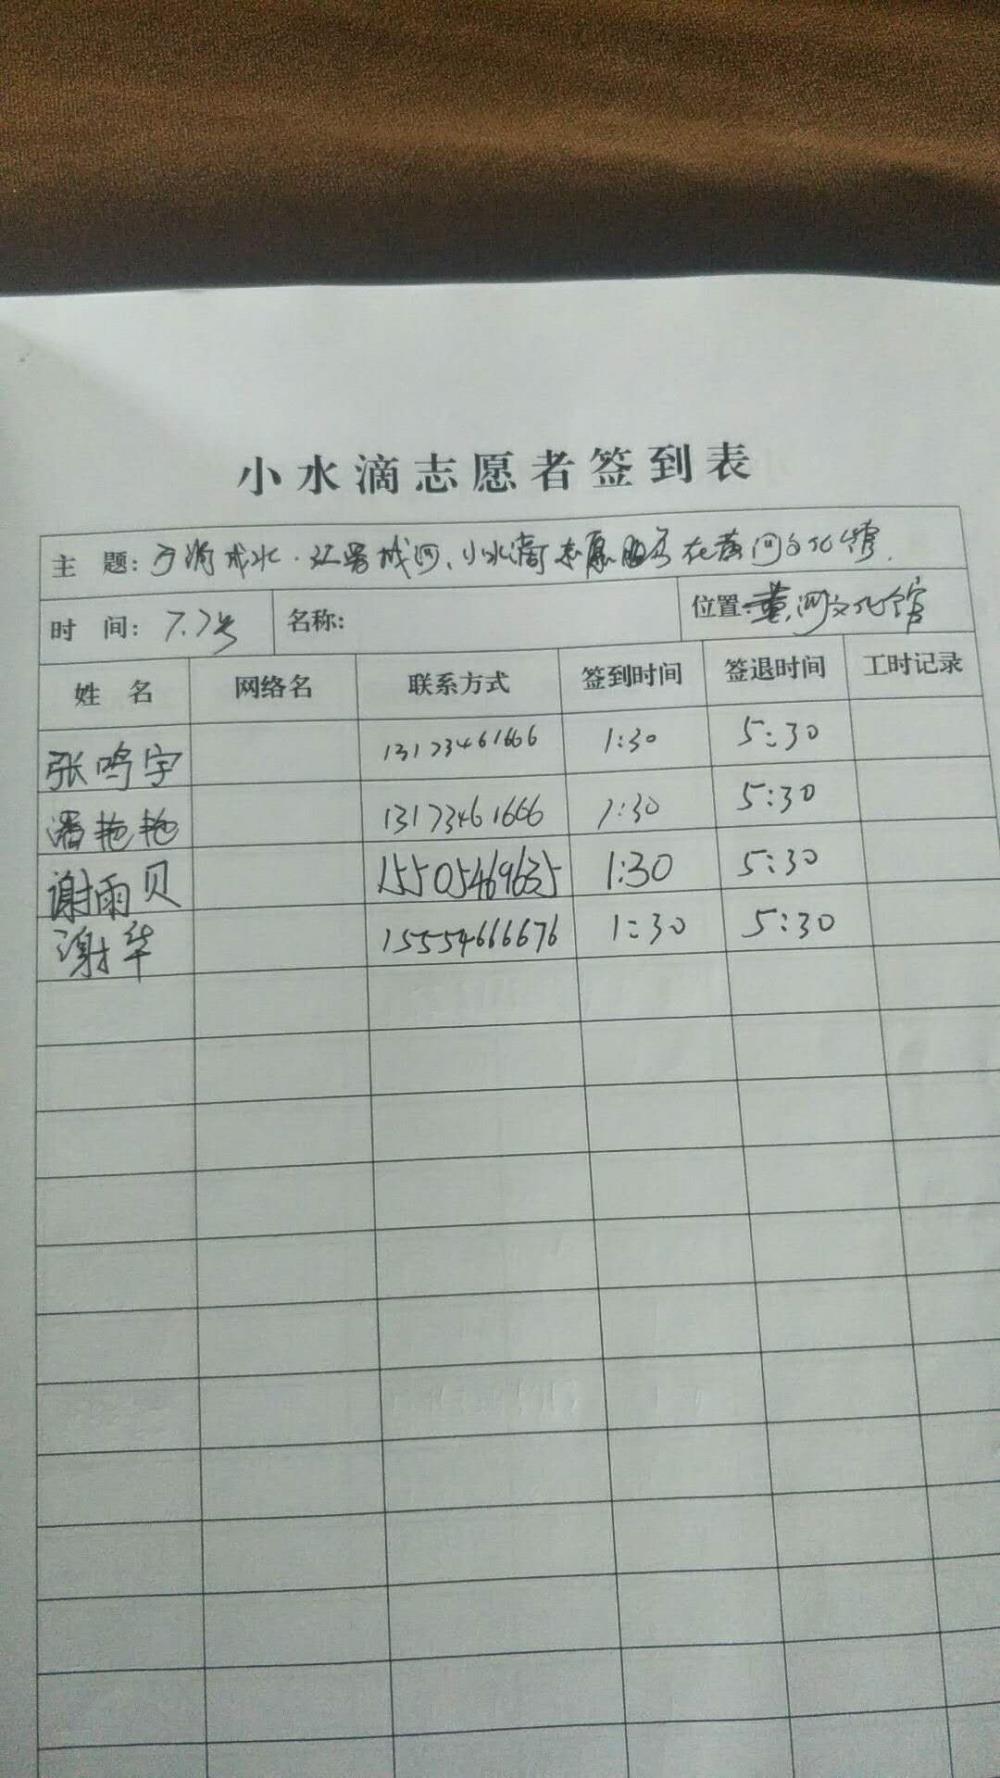 小水滴志愿者签到表
主 题: 小水滴志愿服务在黄河文化馆.
时 间: 7.7号 名称: 位置: 黄河文化馆
姓 名 网络名 联系方式 签到时间 签退时间 工时记录
张鸣宇 13173461666 1:30 5:30
潘艳艳 13173461666 1:30 5:30
谢雨贝 15505469635 1:30 5:30
谢华 15554666676 1:30 5:30